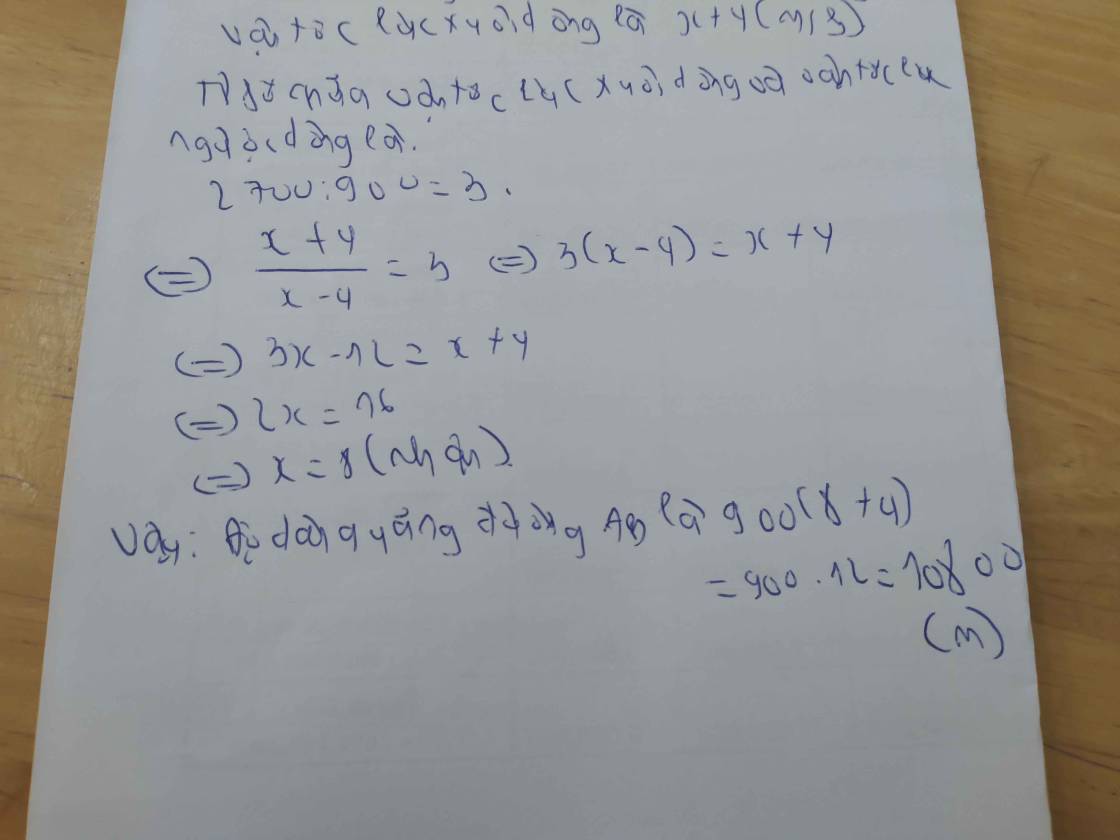 Vận tốc lúc xuôi dòng là x+4(m/s)
Tỉ số giữa vận tốc lúc xuôi dòng và vận tốc lúc
ngược dòng là.
2700:900=3.
(=) x+4/x-4 = 3 (=) 3(x-4) = x+4
(=) 3x-12 = x+4
(=) 2x = 16
(=) x = 8 (nhận).
Vậy: Độ dài quãng đường AB là 900(8+4)
=900.12=10800
(m)